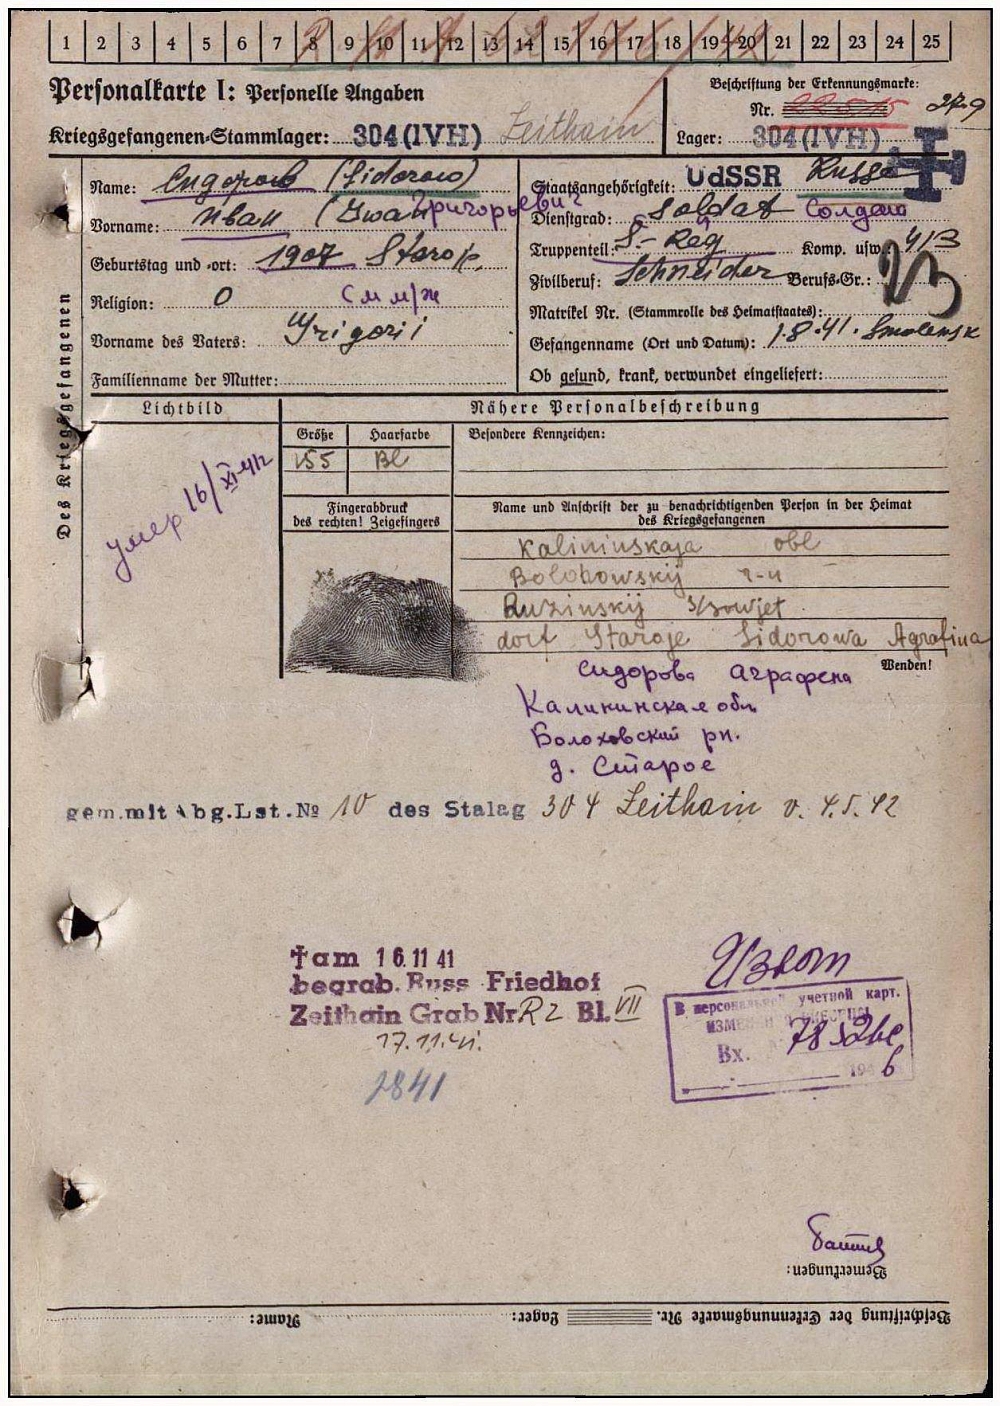 1 2 3 4 5 6 7 8 9 10 11 12 13 14 15 16 17 18 19 20 21 22 23 24 25
Personalkarte I: Personelle Angaben
Kriegsgefangenen-Stammlager: 304 (IVH) Zeithain
Beschriftung der Erkennungsmarke:
Nr. 279
Lager: 304 (IVH)
Des Kriegsgefangenen
Name: Сидоров (Sidorow)
Vorname: Иван (Iwan) Григорьевич
Geburtstag und -ort: 1907 Staroje
Religion: O
Vorname des Vaters: Grigorii
Familienname der Mutter:
Staatsangehörigkeit: UdSSR Russe
Dienstgrad: Soldat Солдат
Truppenteil: S.-Reg Komp. usw.: 4/3
Zivilberuf: Schneider Berufs-Gr.:
Matrikel Nr. (Stammrolle des Heimatstaates):
Gefangennahme (Ort und Datum): 1.8.41. Smolensk
Ob gesund, krank, verwundet eingeliefert:
Lichtbild
Nähere Personalbeschreibung
Größe Haarfarbe Besondere Kennzeichen:
155 Bl
умер 16/XI-41г
Fingerabdruck
des rechten! Zeigefingers
Name und Anschrift der zu benachrichtigenden Person in der Heimat
des Kriegsgefangenen
Kalininskaja obl
Bolohowskij r-n
Ruzinskij s/sowjet
dorf Staroje Sidorowa Agrafina
Wenden!
Сидорова Аграфена
Калининская обл.
Болоховский рн.
д. Старое
gem.mit Abg.Lst.№ 10 des Stalag 304 Zeithain v. 4.5.42
† am 16.11 41
begrab. Russ Friedhof
Zeithain Grab Nr R2 Bl. VII
17.11.41.
2841
В персональной учетной карт.
Вх. 7852
194 6
Bemerkungen:
Beschriftung der Erkennungsmarke Nr. Lager: Name: